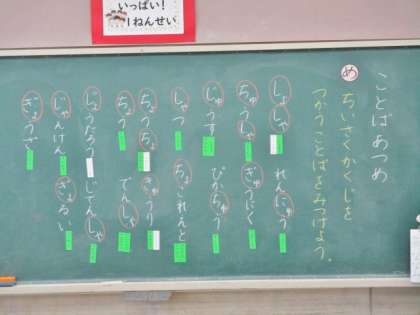 いっぱい!
1ねんせい
ことばあつめ
め ちいさくかくじを
つかうことばをみつけよう。
しょしゃ
れんにゅう
ちゅうしゃ
ぎゅうにく
じゅうす
ぴかちゅう
しゃつ
ちょこれえと
ちょうちょ
きゅうり
でんしゃ
じてんしゃ
じゃんけん
ぎょるい
ぎょうざ